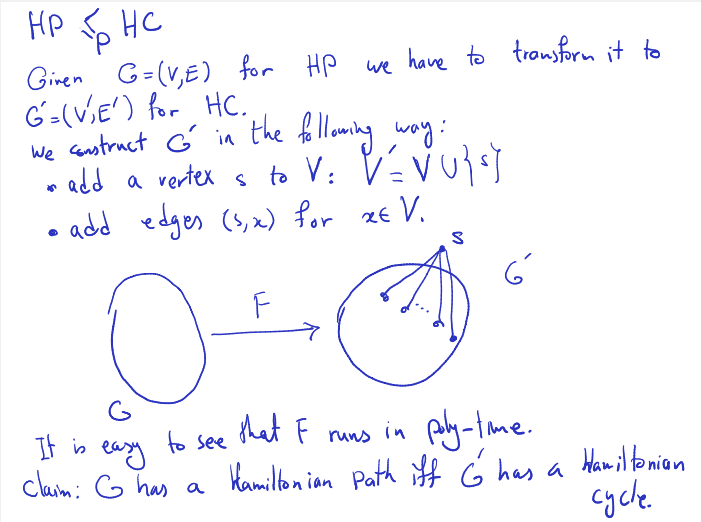 HP ≤p HC
Given G=(V,E) for HP we have to transform it to
G'=(V',E') for HC.
We construct G' in the following way:
• add a vertex s to V: V'=V∪{s}
• add edges (s,x) for x∈V.
s
G'
F
...
G
It is easy to see that F runs in poly-time.
claim: G has a Hamiltonian path iff G' has a Hamiltonian
cycle.